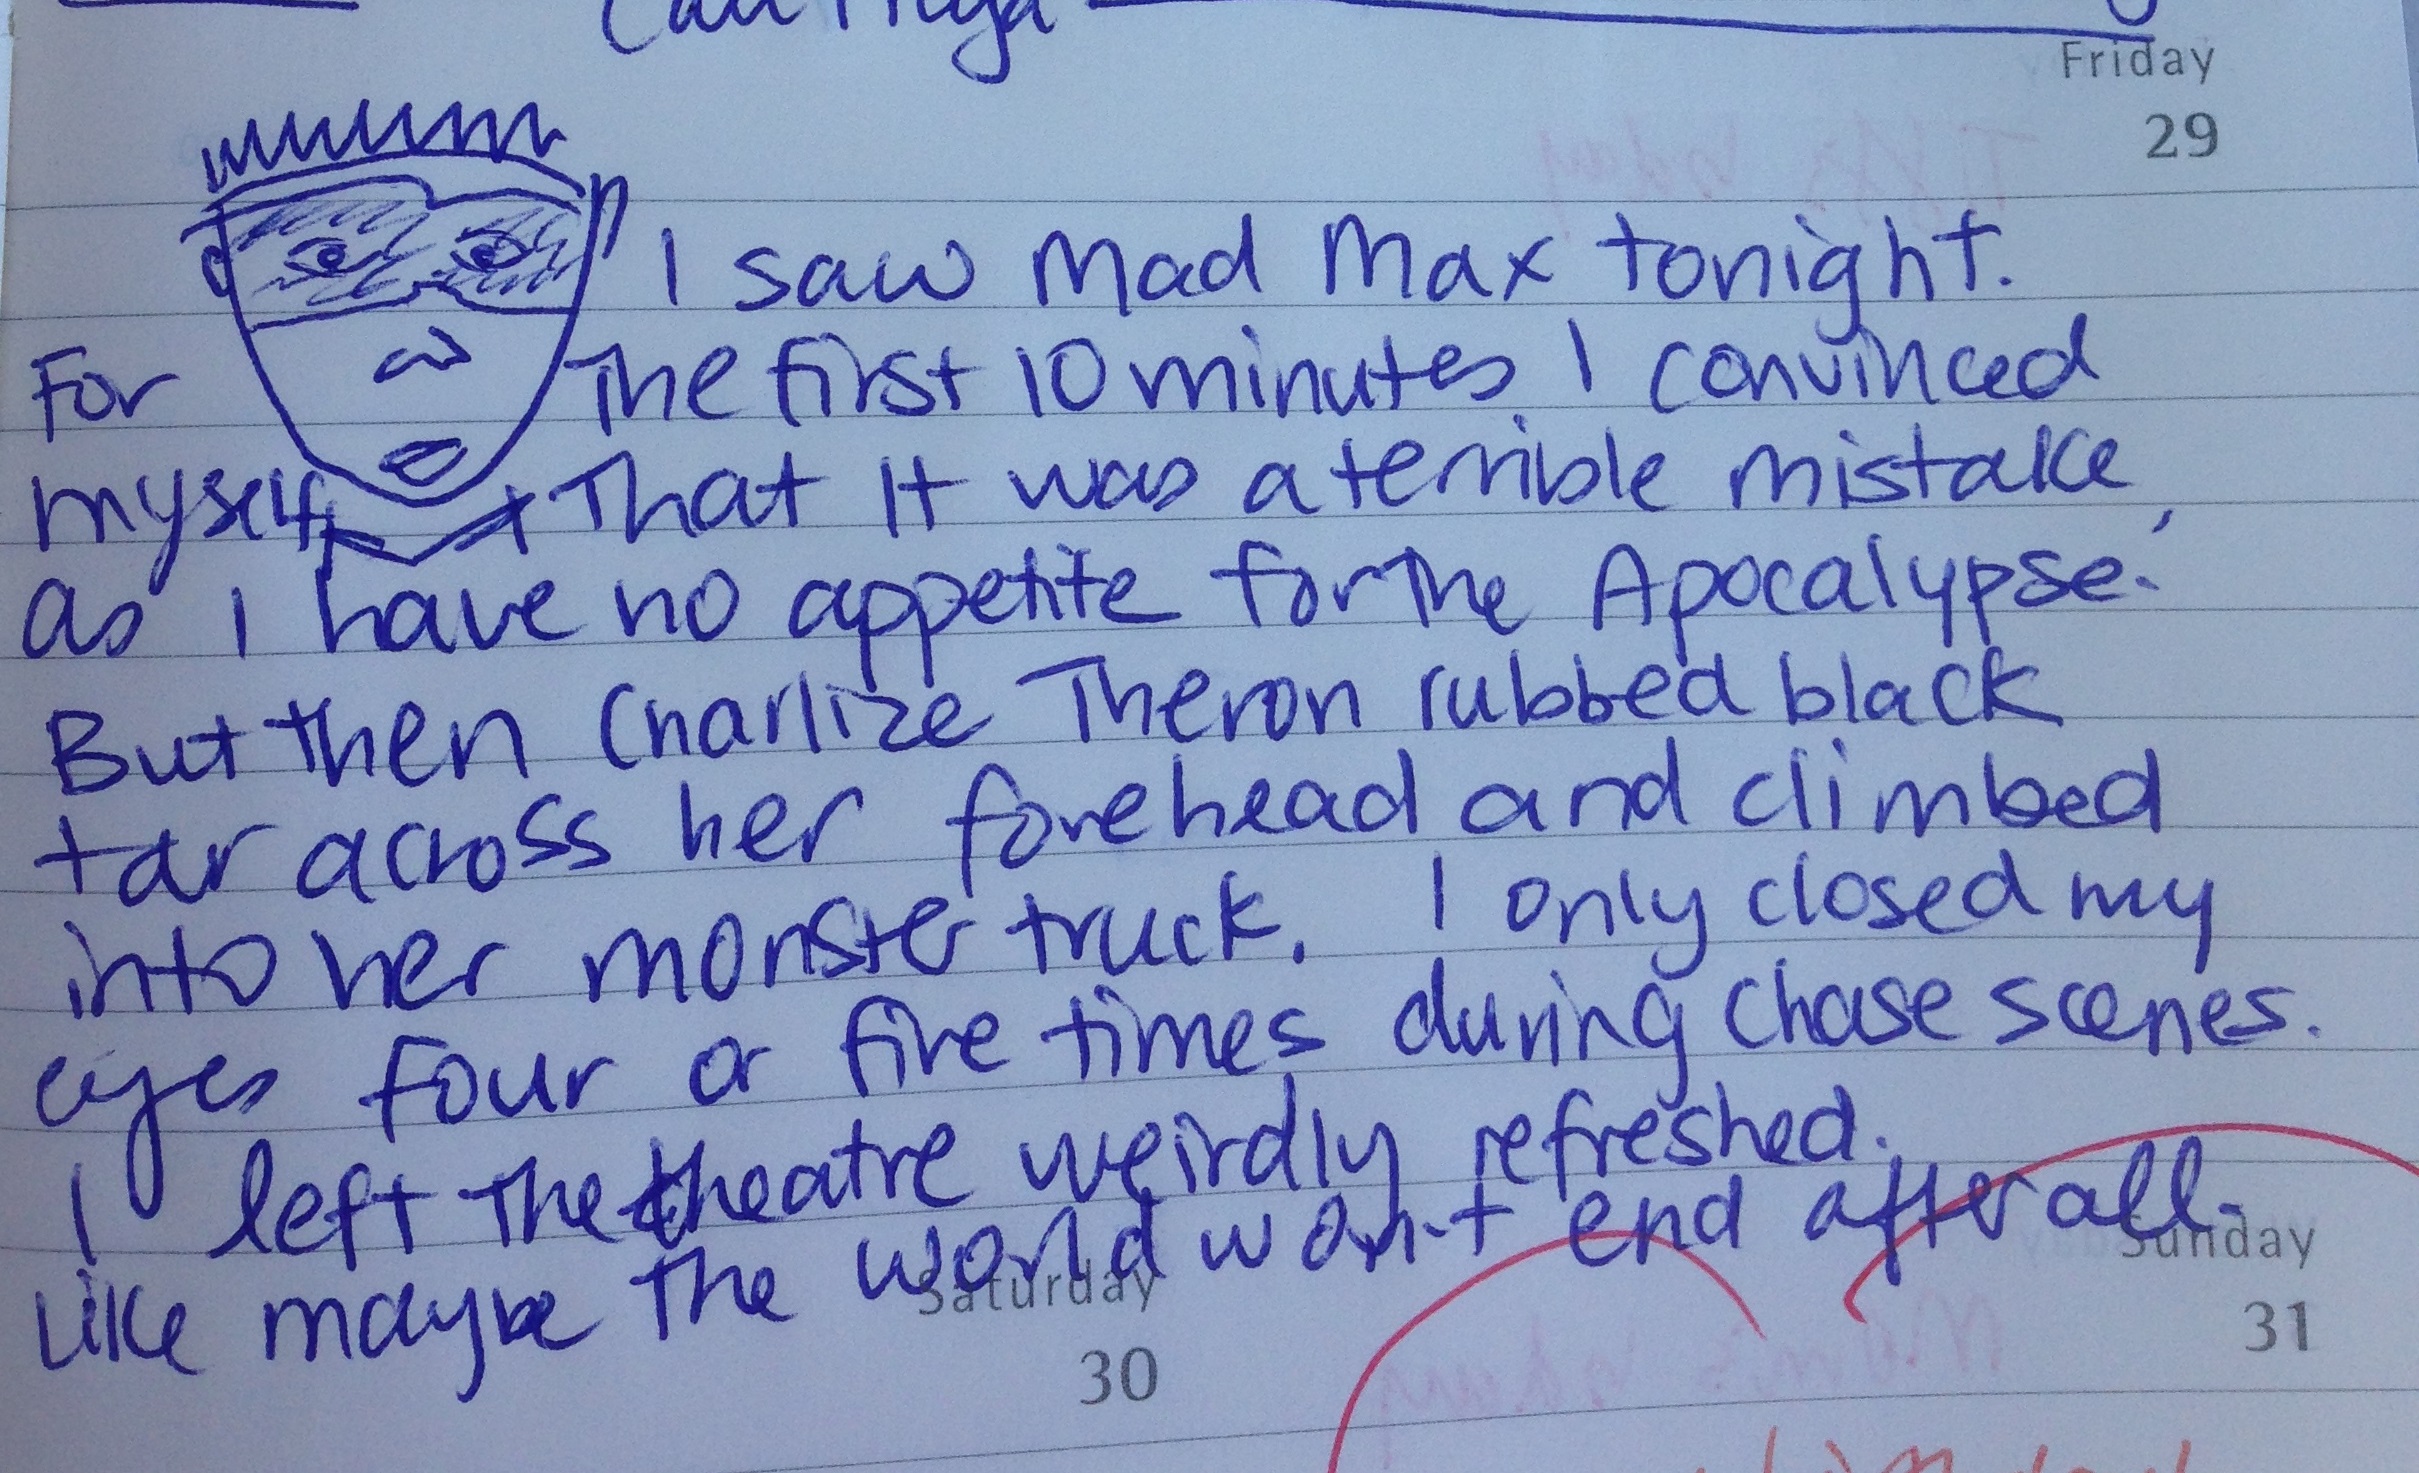 Call Freya
Friday
29
I saw Mad Max tonight.
For the first 10 minutes I convinced
myself that it was a terrible mistake,
as I have no appetite for the Apocalypse.
But then Charlize Theron rubbed black
tar across her forehead and climbed
into her monster truck. I only closed my
eyes four or five times during chase scenes.
I left the theatre weirdly refreshed.
Like maybe the world won't end after all.
Saturday
30
Sunday
31